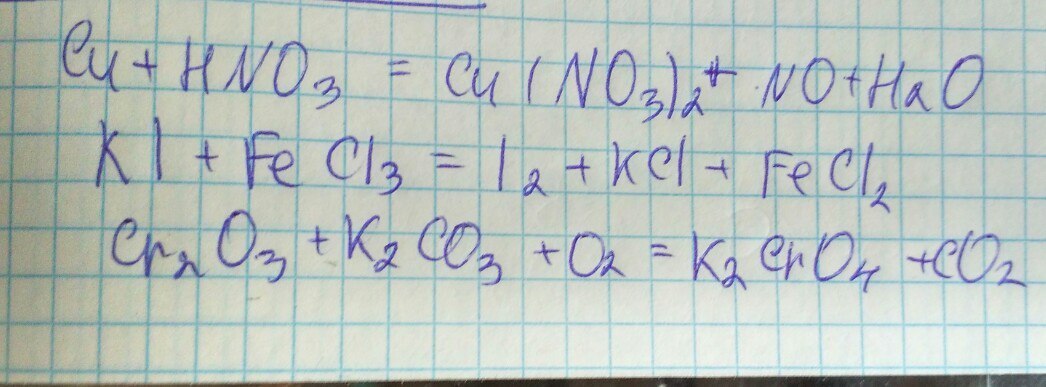 Cu + HNO₃ = Cu(NO₃)₂ + NO + H₂O
KI + FeCl₃ = I₂ + KCl + FeCl₂
Cr₂O₃ + K₂CO₃ + O₂ = K₂CrO₄ + CO₂